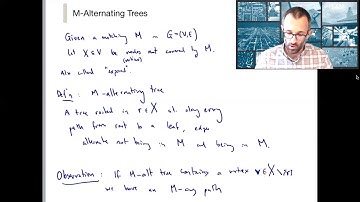 M-Alternating Trees
Given a matching M in G=(V,E)
Let X ⊆ V be nodes not covered by M.
(vertices)
also called "exposed".
Def'n: M-alternating tree
A tree rooted in r∈X s.t. along every
path from root to a leaf, edges
alternate not being in M and being in M.
Observation: If M-alt tree contains a vertex v∈X\{r}
we have an M-aug path